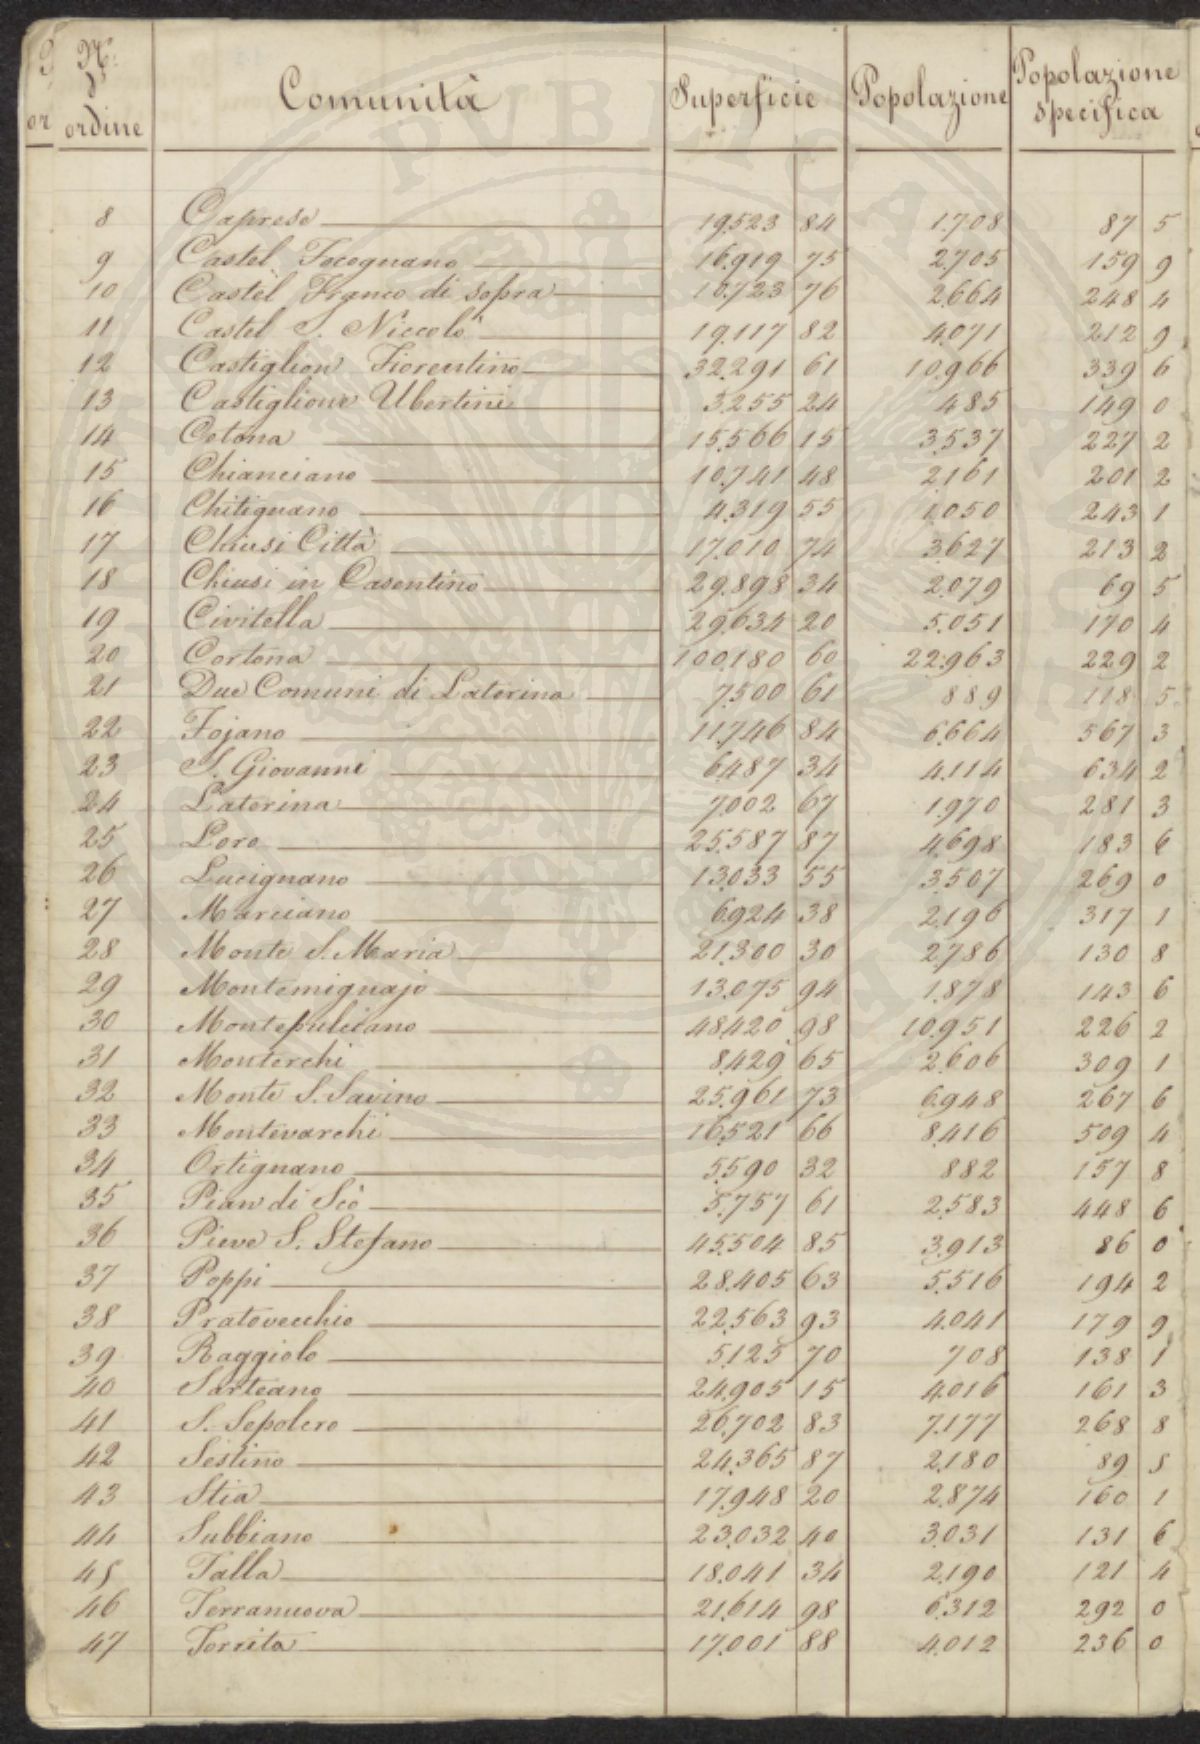 N.° d' ordine Comunità Superficie Popolazione Popolazione specifica
or
8 Caprese 19.523 84 1.708 87 5
9 Castel Focognano 16.919 75 2.705 159 9
10 Castel Franco di sopra 10.723 76 2.664 248 4
11 Castel S. Niccolò 19.117 82 4.071 212 9
12 Castiglion Fiorentino 32.291 61 10.966 339 6
13 Castiglione Ubertini 3.255 24 485 149 0
14 Cetona 15.566 15 3.537 227 2
15 Chianciano 10.741 48 2.161 201 2
16 Chitignano 4.319 55 1.050 243 1
17 Chiusi Città 17.010 74 3.627 213 2
18 Chiusi in Casentino 29.898 34 2.079 69 5
19 Civitella 29.634 20 5.051 170 4
20 Cortona 100.180 60 22.963 229 2
21 Due Comuni di Laterina 7.500 61 889 118 5
22 Fojano 11.746 84 6.664 567 3
23 S. Giovanni 6.487 34 4.114 634 2
24 Laterina 7.002 67 1.970 281 3
25 Loro 25.587 87 4.698 183 6
26 Lucignano 13.033 55 3.507 269 0
27 Marciano 6.924 38 2.196 317 1
28 Monte S. Maria 21.300 30 2.786 130 8
29 Montemignajo 13.075 94 1.878 143 6
30 Montepulciano 48.420 98 10.951 226 2
31 Monterchi 8.429 65 2.606 309 1
32 Monte S. Savino 25.961 73 6.948 267 6
33 Montevarchi 16.521 66 8.416 509 4
34 Ortignano 5.590 32 882 157 8
35 Pian di Scò 5.757 61 2.583 448 6
36 Pieve S. Stefano 45.504 85 3.913 86 0
37 Poppi 28.405 63 5.516 194 2
38 Pratovecchio 22.563 93 4.041 179 9
39 Raggiolo 5.125 70 708 138 1
40 Sarteano 24.905 15 4.016 161 3
41 S. Sepolcro 26.702 83 7.177 268 8
42 Sestino 24.365 87 2.180 89 5
43 Stia 17.948 20 2.874 160 1
44 Subbiano 23.032 40 3.031 131 6
45 Talla 18.041 34 2.190 121 4
46 Terranuova 21.614 98 6.312 292 0
47 Torrita 17.001 88 4.012 236 0